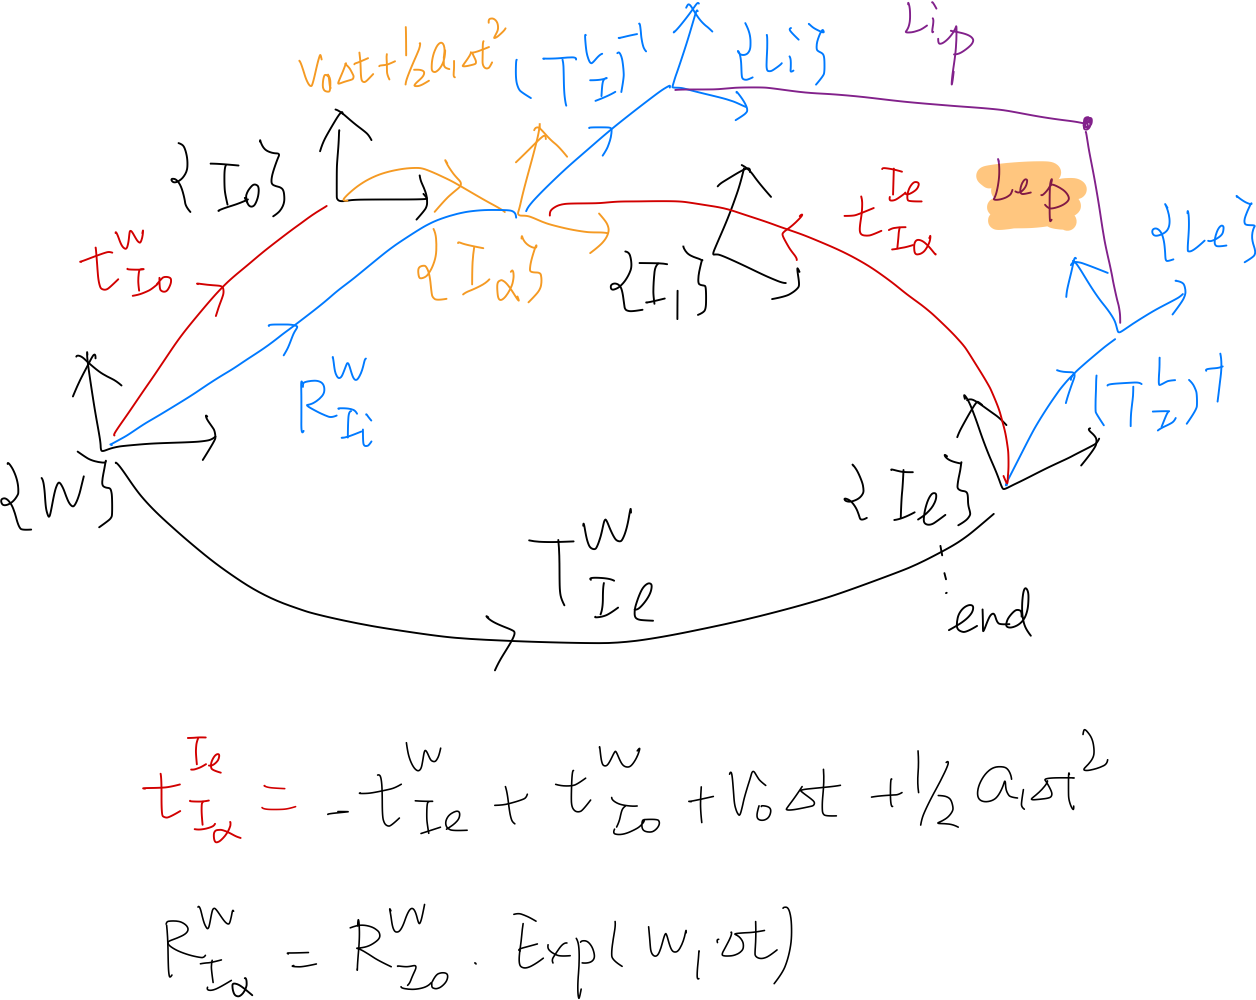 V₀Δt+½a₁Δt²
(T_I^L)⁻¹
{Li}
Li_p
{I₀}
t_{I₀}^W
{Iα}
{I₁}
t_{Iα}^{Ie}
Le_p
{Le}
R_{Ii}^W
(T_I^L)⁻¹
{W}
{Ie}
T_{Ie}^W
end
t_{Iα}^{Ie} = -t_{Ie}^W + t_{I₀}^W + V₀Δt + ½a₁Δt²
R_{Iα}^W = R_{I₀}^W · Exp(W₁·Δt)